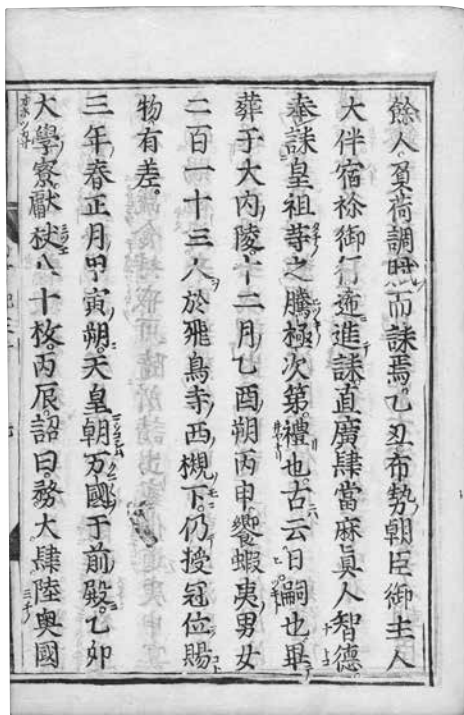 餘人。負荷調賦而誄焉。乙丑布勢朝臣御主人
大伴宿祢御行逓進誄直廣肆當麻真人智德
奉誄皇祖等之騰極次第。禮也。古云日嗣也畢
葬于大内陵。十二月乙酉朔丙申饗蝦夷男女
二百一十三人於飛鳥寺西槻下。仍授冠位賜
物有差。
三年春正月甲寅朔。天皇朝万國于前殿。乙卯
大學寮。獻杖八十枚。丙辰。詔曰。務大肆陸奥國